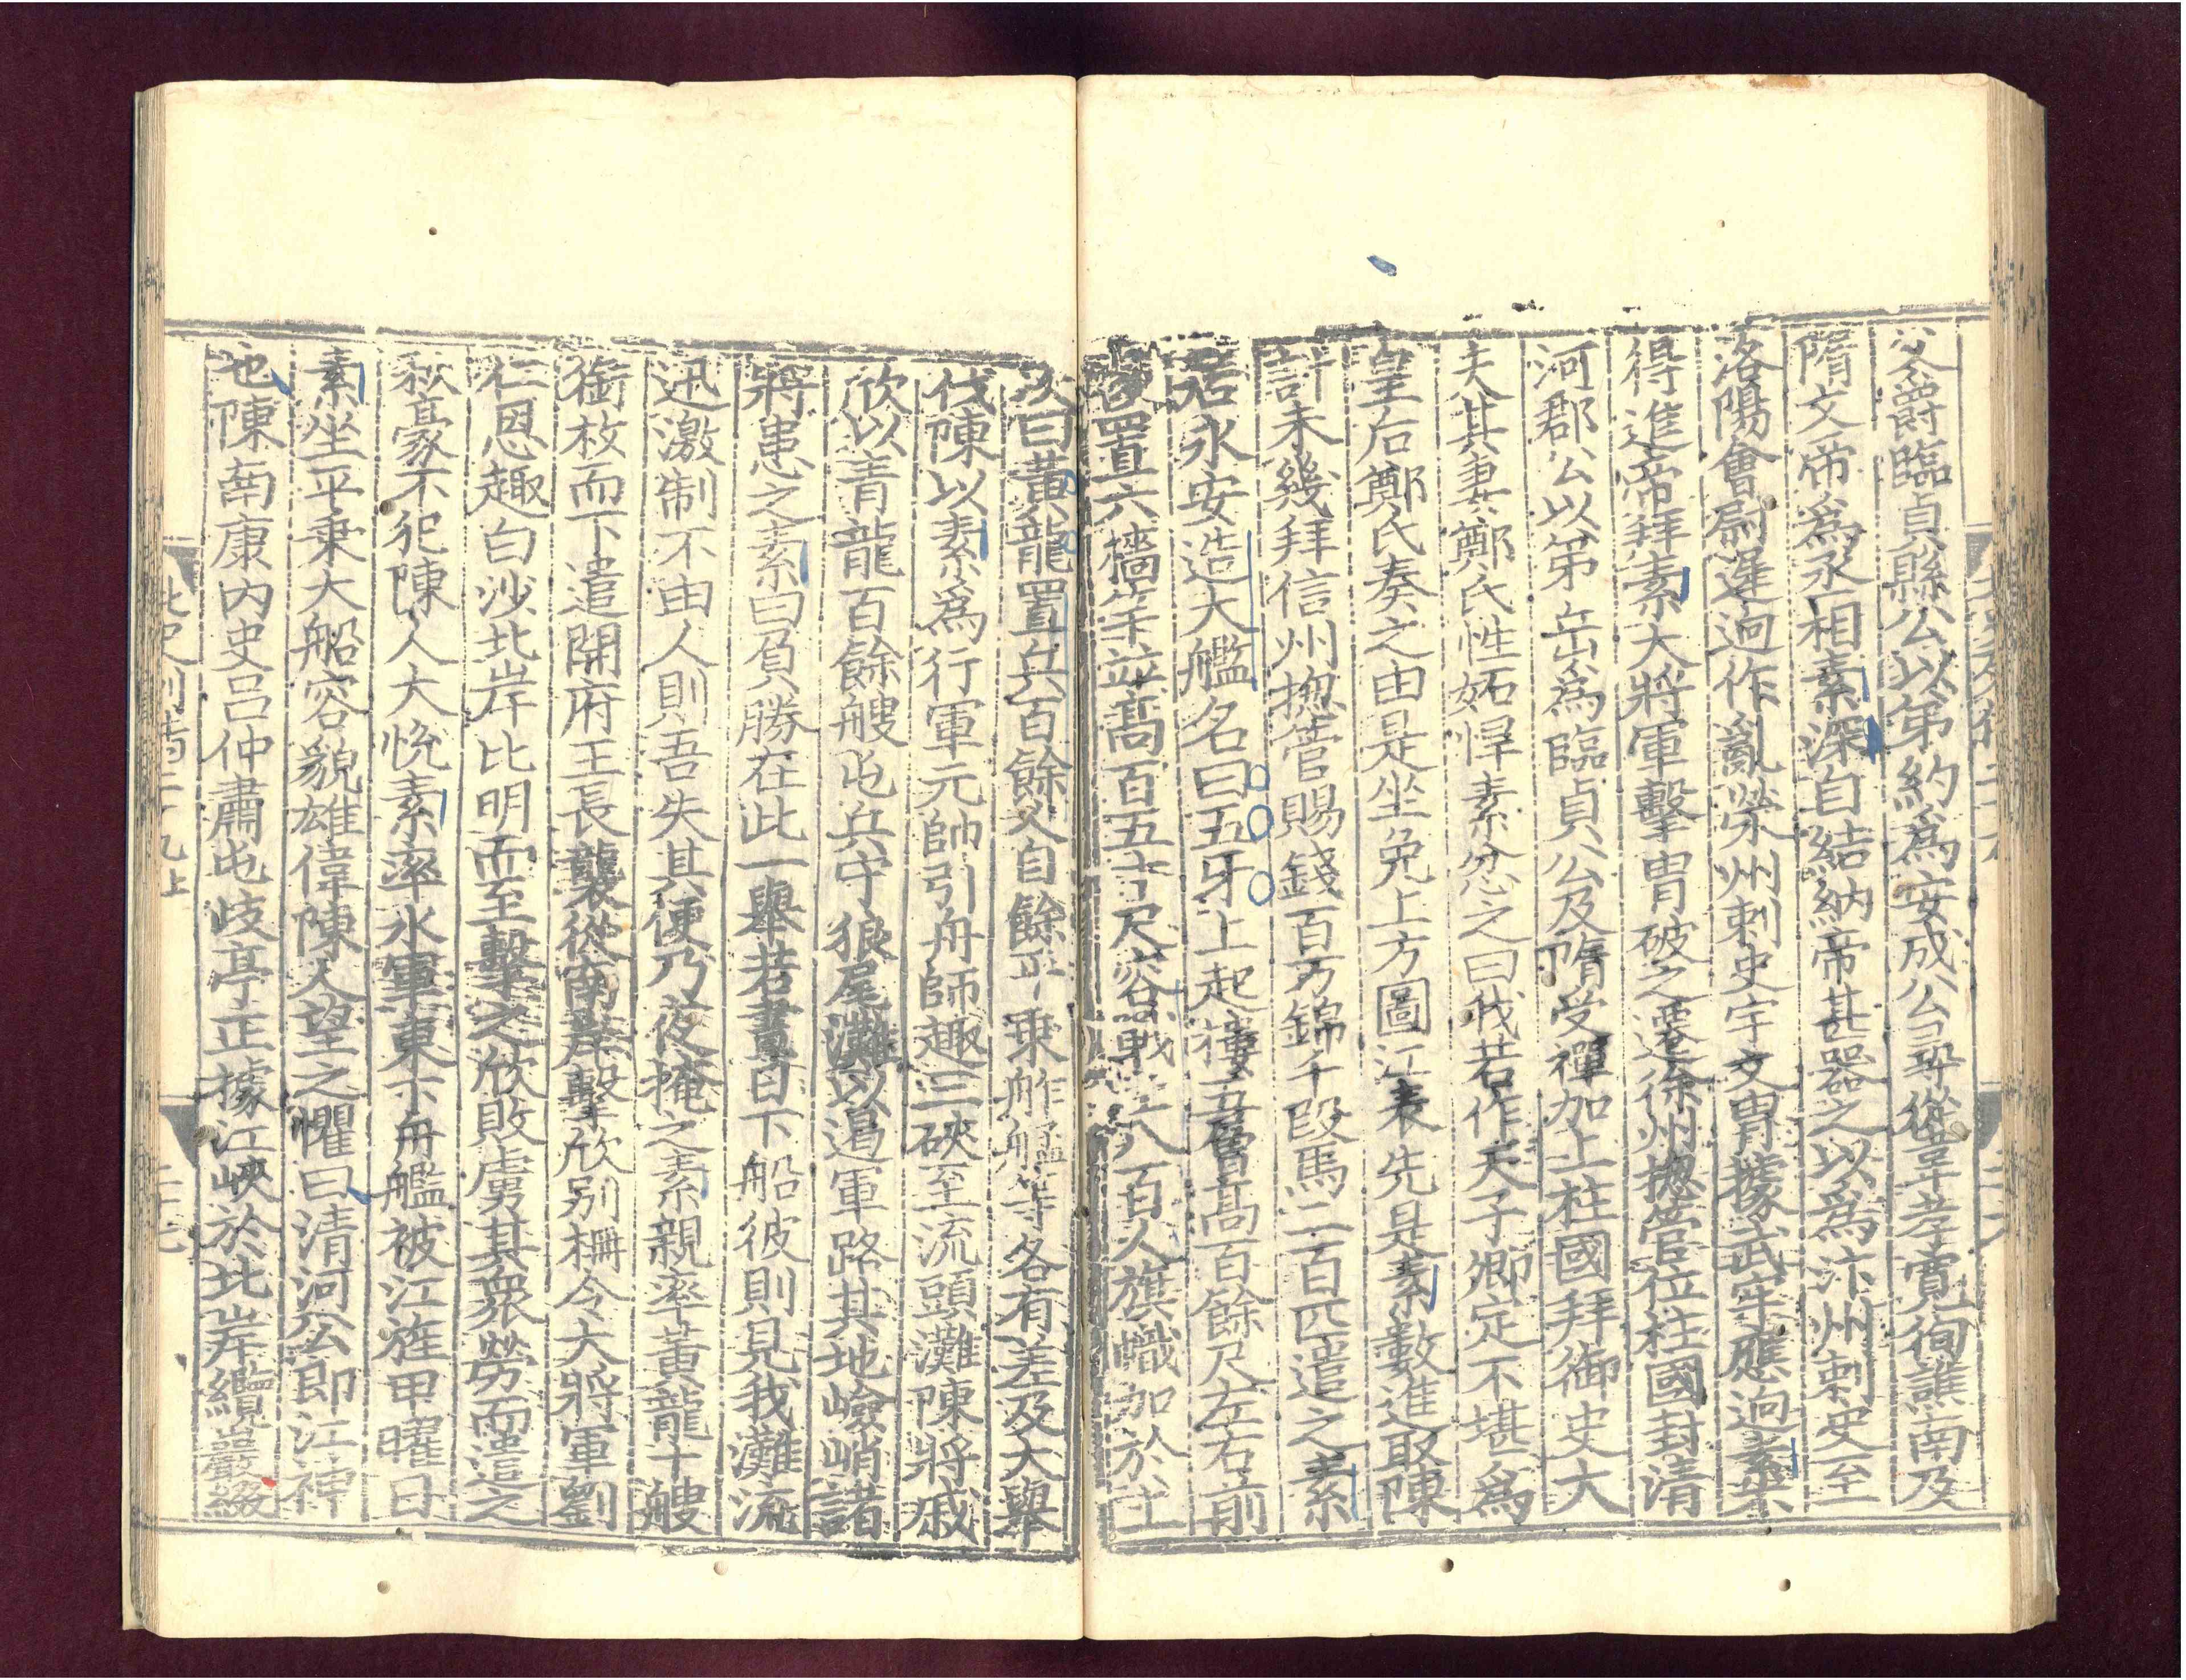 父爵臨貞縣公以弟約爲安成公尋從韋孝寬徇譙南及
隋文帝爲丞相素深自結納帝甚器之以爲汴州刺史至
洛陽會尉遲迥作亂滎州刺史宇文胄據武牢應迥素不
得進帝拜素大將軍擊胄破之遷徐州揔管位柱國封清
河郡公以弟岳爲臨貞公及隋受禪加上柱國拜御史大
夫其妻鄭氏性妬悍素忿之曰我若作天子卿定不堪爲
皇后鄭氏奏之由是坐免上方圖江表先是素數進取陳
計未幾拜信州揔管賜錢百万錦千段馬二百匹遣之素
居永安造大艦名曰五牙上起樓五層髙百餘尺左右前
後置六檣竿並髙百五十尺容戰士八百人旗幟加於上
次曰黄龍置兵百餘人自餘平乗舴艋等各有差及大舉
伐陳以素爲行軍元帥引舟師趣三硤至流頭灘陳將戚
欣以青龍百餘艘屯兵守狼尾灘以遏軍路其地嶮峭諸
將患之素曰負勝在此一舉若晝日下船彼則見我灘流
迅激制不由人則吾失其便乃夜掩之素親率黄龍十艘
銜枚而下遣開府王長襲從南岸擊欣別柵令大將軍劉
仁恩趣白沙北岸比明而至擊之欣敗虜其衆勞而遣之
秋豪不犯陳人大悅素率水軍東下舟艫被江旌甲曜日
素坐平乗大船容貌雄偉陳人望之懼曰清河公即江神
也陳南康内史吕仲肅屯岐亭正據江峽於北岸纜巖綴
北史列傳二十九上
二十七